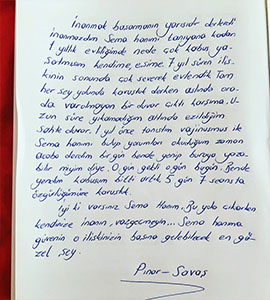 İnanmak başarmanın yarısıdır derlerdi
inanmazdım Sema hanımı tanıyana kadar
1 yıllık evliliğimde nede çok kabus ya-
şatmışım kendime, eşime. 7 yıl süren iliş-
kinin sonunda çok severek evlendik Tam
her şey yolunda kavuştuk derken aslında ora-
da varolmayan bir duvar çıktı karşıma. U-
zun süre yıkamadığım altında ezildiğim
sahte duvar. 1 yıl önce tanıştım vajinusmus ile
Sema hanımı bulup yorumları okuduğum zaman
acaba dedim bir gün bende yenip buraya yaza-
bilir miyim diye. O gün geldi o gün bugün. Bende
yendim kabusum bitti artık 5 gün 7 seansta
özgürlüğümüze kavuştuk.
İyi ki varsınız Sema Hanım. Bu yola çıkarken
kendinize inanın, vazgeçmeyin... Sema hanıma
güvenin o ilişkinizin başına gelebilecek en gü-
zel şey.
Pınar-Savaş